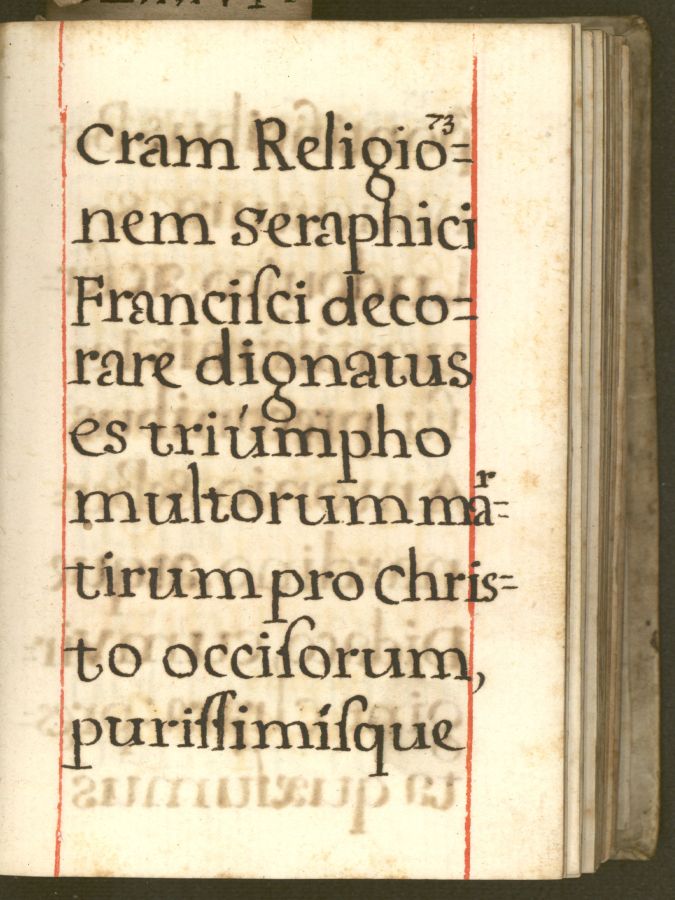 73
cram Religio=
nem seraphici
Franciſci deco=
rare dignatus
es triúmpho
multorum mar=
tirum pro chris=
to occiſorum,
puriſſimíſque